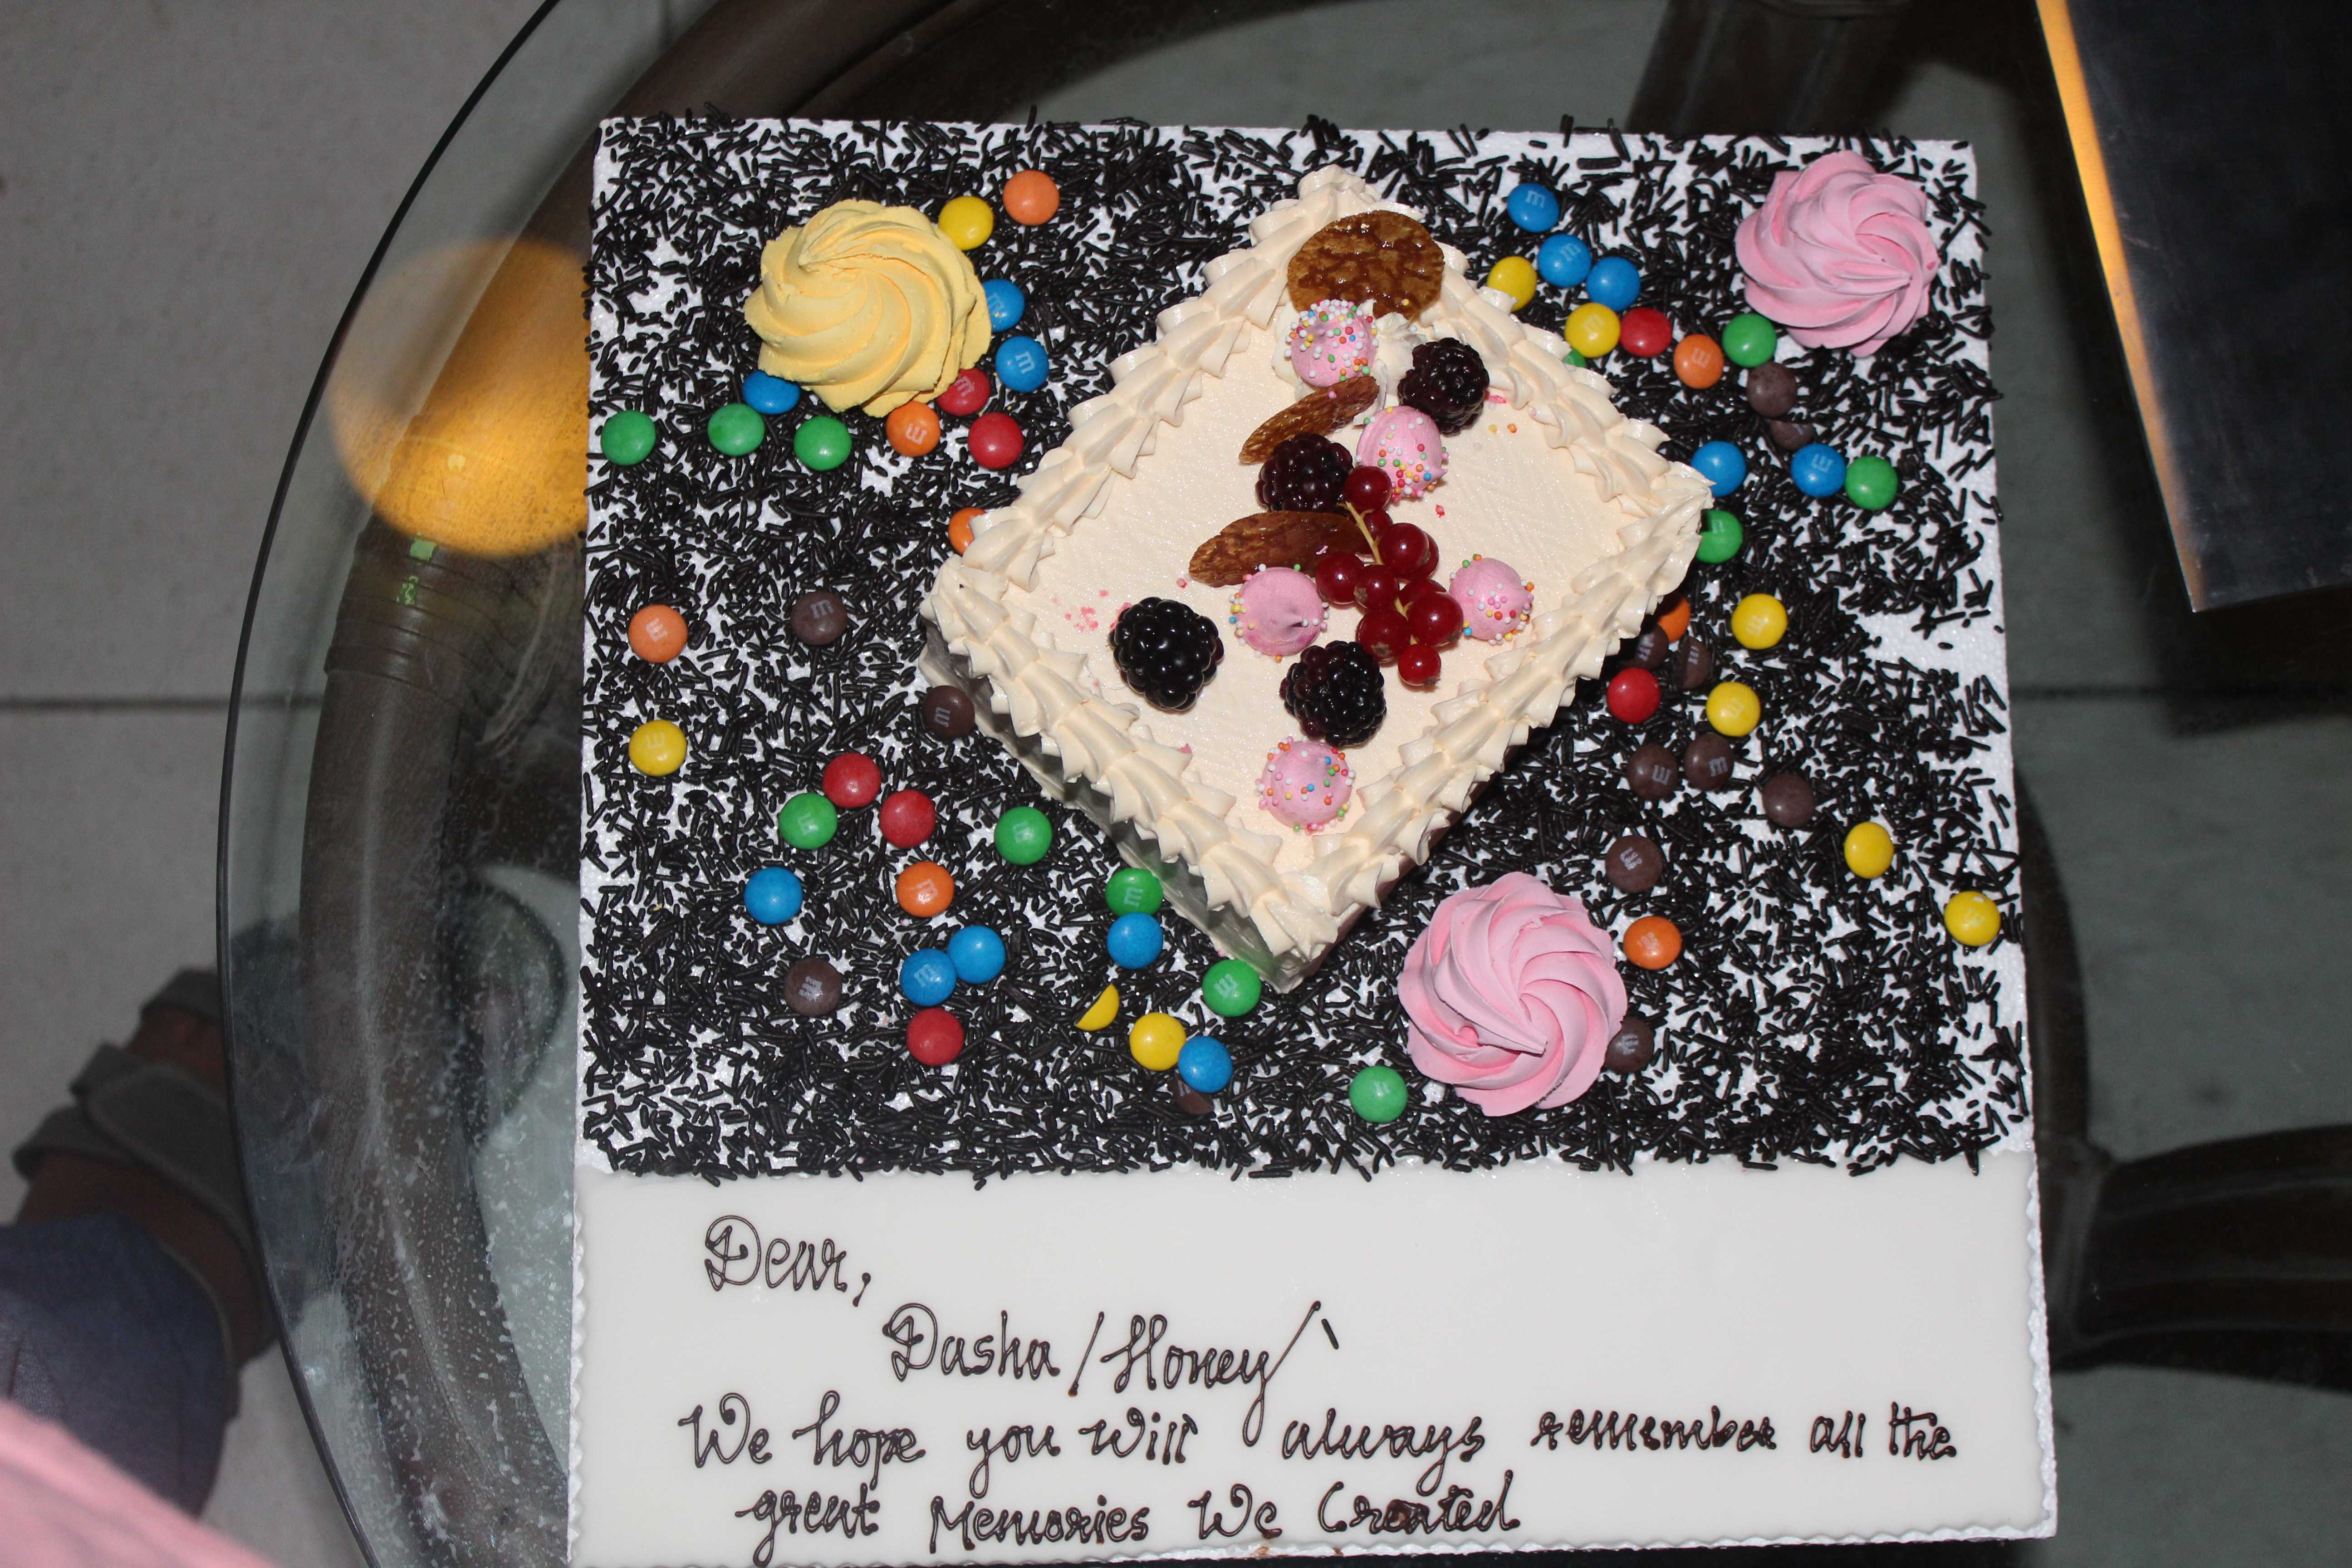 Dear,
Dasha/Honey
We hope you will always remember all the
great Memories We Created